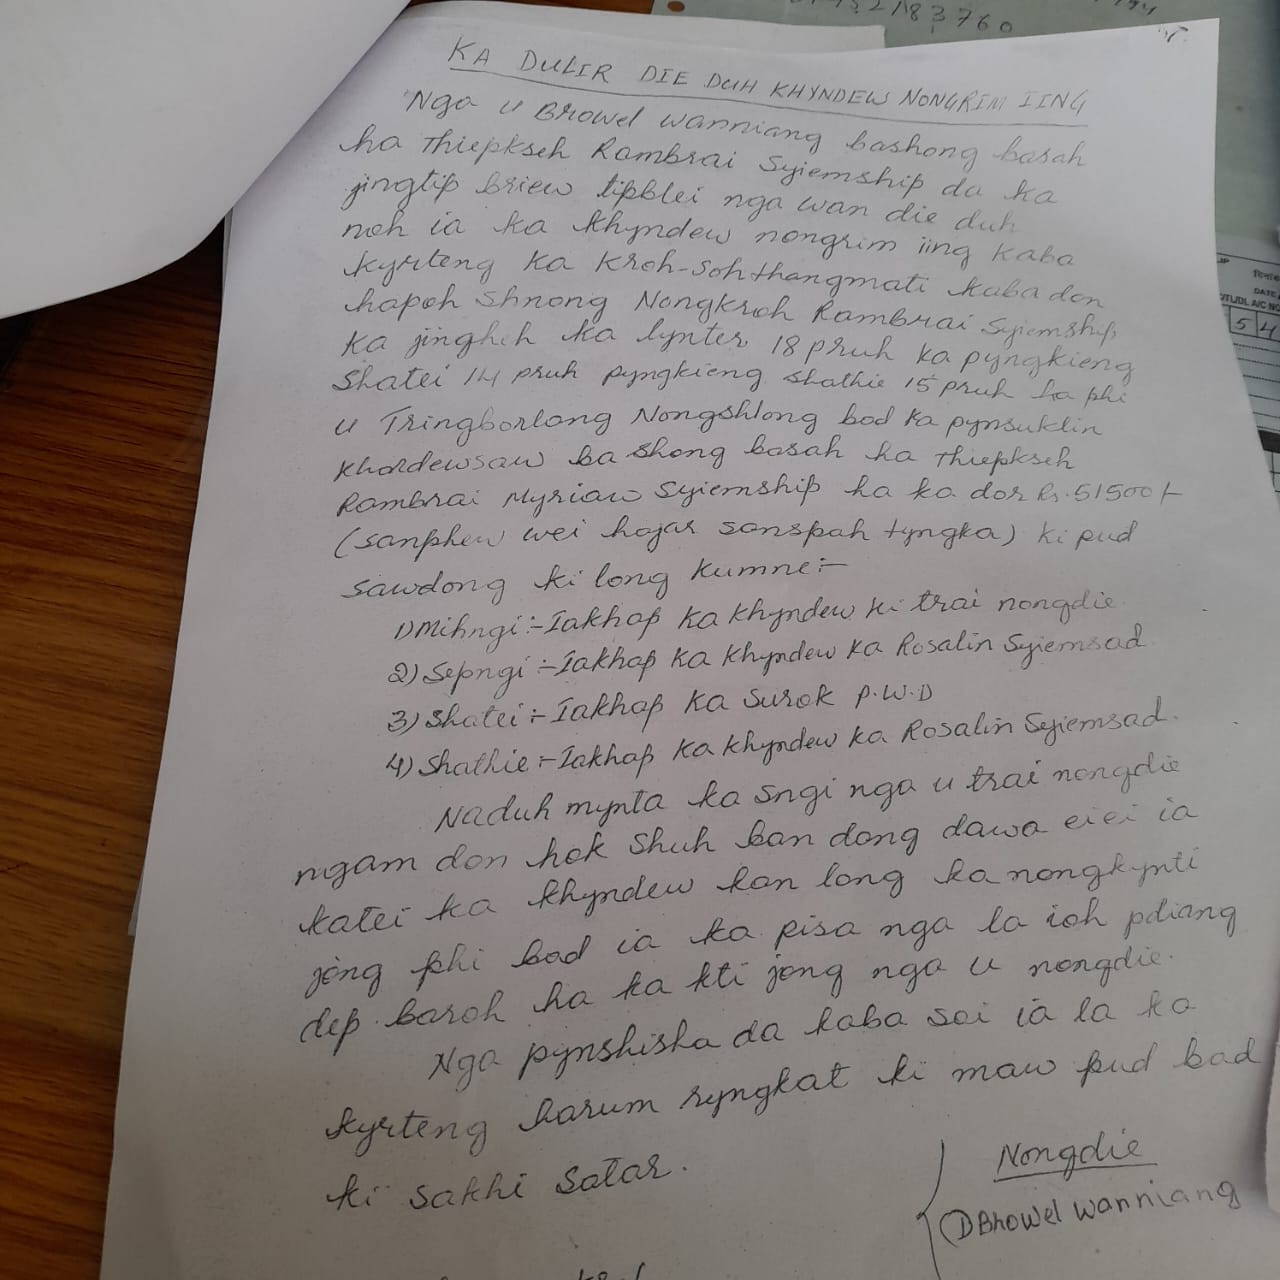 2183760
KA DULIR DIE DUH KHYNDEW NONGRIM IING
Nga u Browel wanniang bashong basah
ha Thiepkseh Rambrai Syiemship da ka
jingtip briew tipblei nga wan die duh
noh ia ka khyndew nongrim iing kaba
kyrteng ka Kroh-sohthangmati kaba don
hapoh shnong Nongkroh Rambrai Syiemship
Ka jingheh ka lynter 18 pruh ka pyngkieng
shatei 14 pruh pyngkieng shathie 15 pruh ha phi
u Tringborlang Nongshlong bad ka pynsuklin
khardewsaw ba shong basah ha Thiepkseh
Rambrai Myriaw Syiemship ha ka dor Rs.51500/-
(sanphew wei hajar sanspah tyngka) ki pud
sawdong ki long kumne:-
1) Mihngi:- Iakhap ka khyndew ki trai nongdie
2) Sepngi:- Iakhap ka khyndew ka Rosalin Syiemsad
3) Shatei:- Iakhap ka surok P.W.D
4) Shathie:- Iakhap ka khyndew ka Rosalin Syiemsad.
Naduh mynta ka sngi nga u trai nongdie
ngam don hok shuh ban dang dawa eiei ia
katei ka khyndew kan long ka nongkynti
jong phi bad ia ka pisa nga la ioh pdiang
dep baroh ha ka kti jong nga u nongdie.
Nga pynshisha da kaba soi ia la ka
kyrteng harum ryngkat ki maw pud bad
ki sakhi satar.
Nongdie
1) Bhowel wanniang
DATE
TL/DL A/C NO
5 4